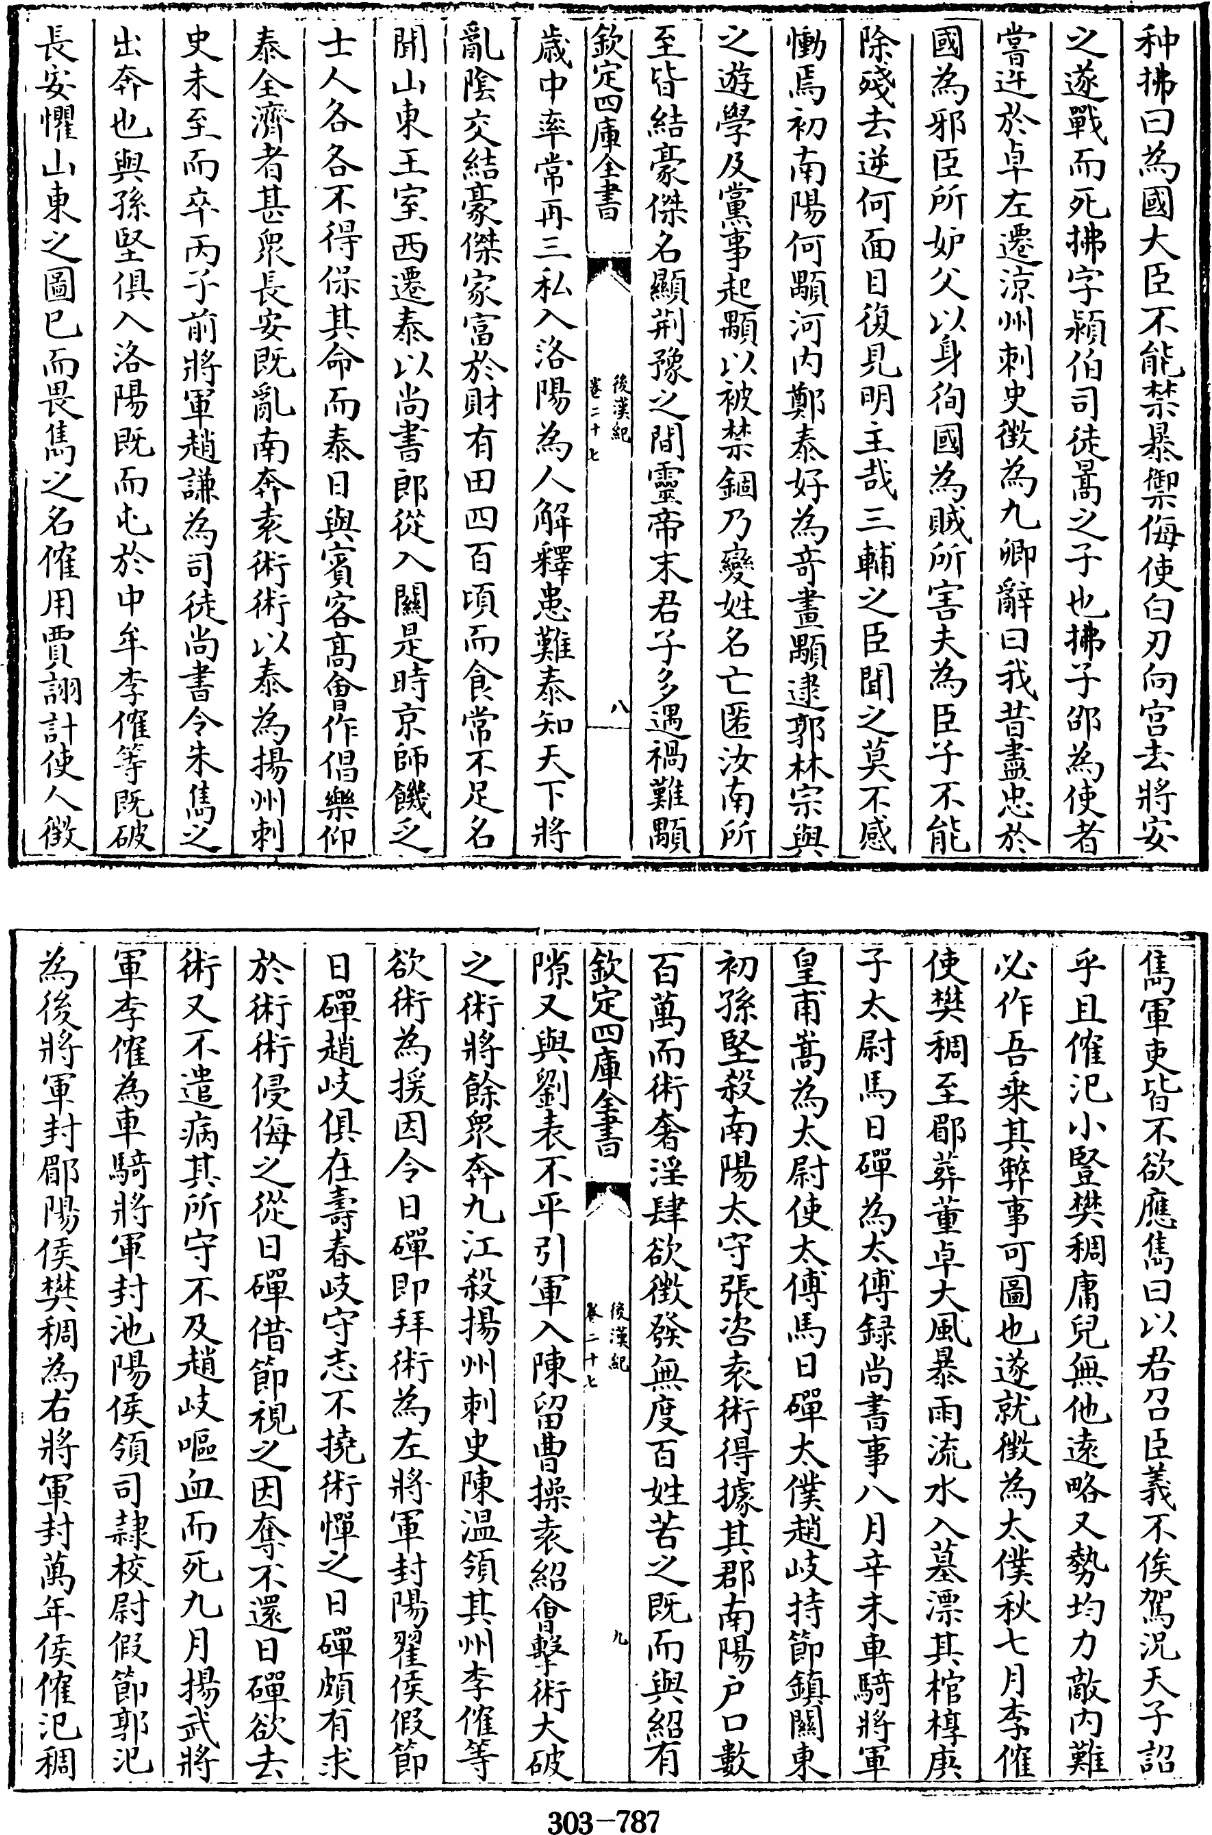 种拂曰為國大臣不能禁暴禦侮使白刃向宫去將安
之遂戰而死拂字潁伯司徒暠之子也拂子邵為使者
嘗迕於卓左遷涼州刺史徵為九卿辭曰我昔盡忠於
國為邪臣所妒父以身徇國為賊所害夫為臣子不能
除殘去逆何面目復見明主哉三輔之臣聞之莫不感
慟焉初南陽何顒河内鄭泰好為竒畫顒逮郭林宗與
之遊學及黨事起顒以被禁錮乃變姓名亡匿汝南所
至皆結豪傑名顯荆豫之間靈帝末君子多遇禍難顒
欽定四庫全書 後漢紀 卷二十七 八
歳中率常再三私入洛陽為人解釋患難泰知天下將
亂陰交結豪傑家富於財有田四百頃而食常不足名
聞山東王室西遷泰以尚書郎從入關是時京師饑乏
士人各各不得保其命而泰日與賓客髙會作倡樂仰
泰全濟者甚衆長安既亂南奔袁術術以泰為揚州刺
史未至而卒丙子前將軍趙謙為司徒尚書令朱儁之
出奔也與孫堅俱入洛陽既而屯於中牟李傕等既破
長安懼山東之圖已而畏儁之名傕用賈詡計使人徵
儁軍吏皆不欲應儁曰以君召臣義不俟駕況天子詔
乎且傕汜小豎樊稠庸兒無他逺略又勢均力敵内難
必作吾乗其弊事可圖也遂就徴為太僕秋七月李傕
使樊稠至郿葬董卓大風暴雨流水入墓漂其棺槨庚
子太尉馬日磾為太傅録尚書事八月辛未車騎將軍
皇甫嵩為太尉使太傅馬日磾太僕趙岐持節鎮關東
初孫堅殺南陽太守張咨袁術得據其郡南陽戶口數
百萬而術奢淫肆欲徴發無度百姓苦之既而與紹有
欽定四庫全書 後漢紀 卷二十七 九
隙又與劉表不平引軍入陳留曹操袁紹會擊術大破
之術將餘衆奔九江殺揚州刺史陳温領其州李傕等
欲術為援因令日磾即拜術為左將軍封陽翟侯假節
日磾趙岐俱在壽春岐守志不撓術憚之日磾頗有求
於術術侵侮之從日磾借節視之因奪不還日磾欲去
術又不遣病其所守不及趙岐嘔血而死九月揚武將
軍李傕為車騎將軍封池陽侯領司隸校尉假節郭汜
為後將軍封郿陽侯樊稠為右將軍封萬年侯傕汜稠
303-787